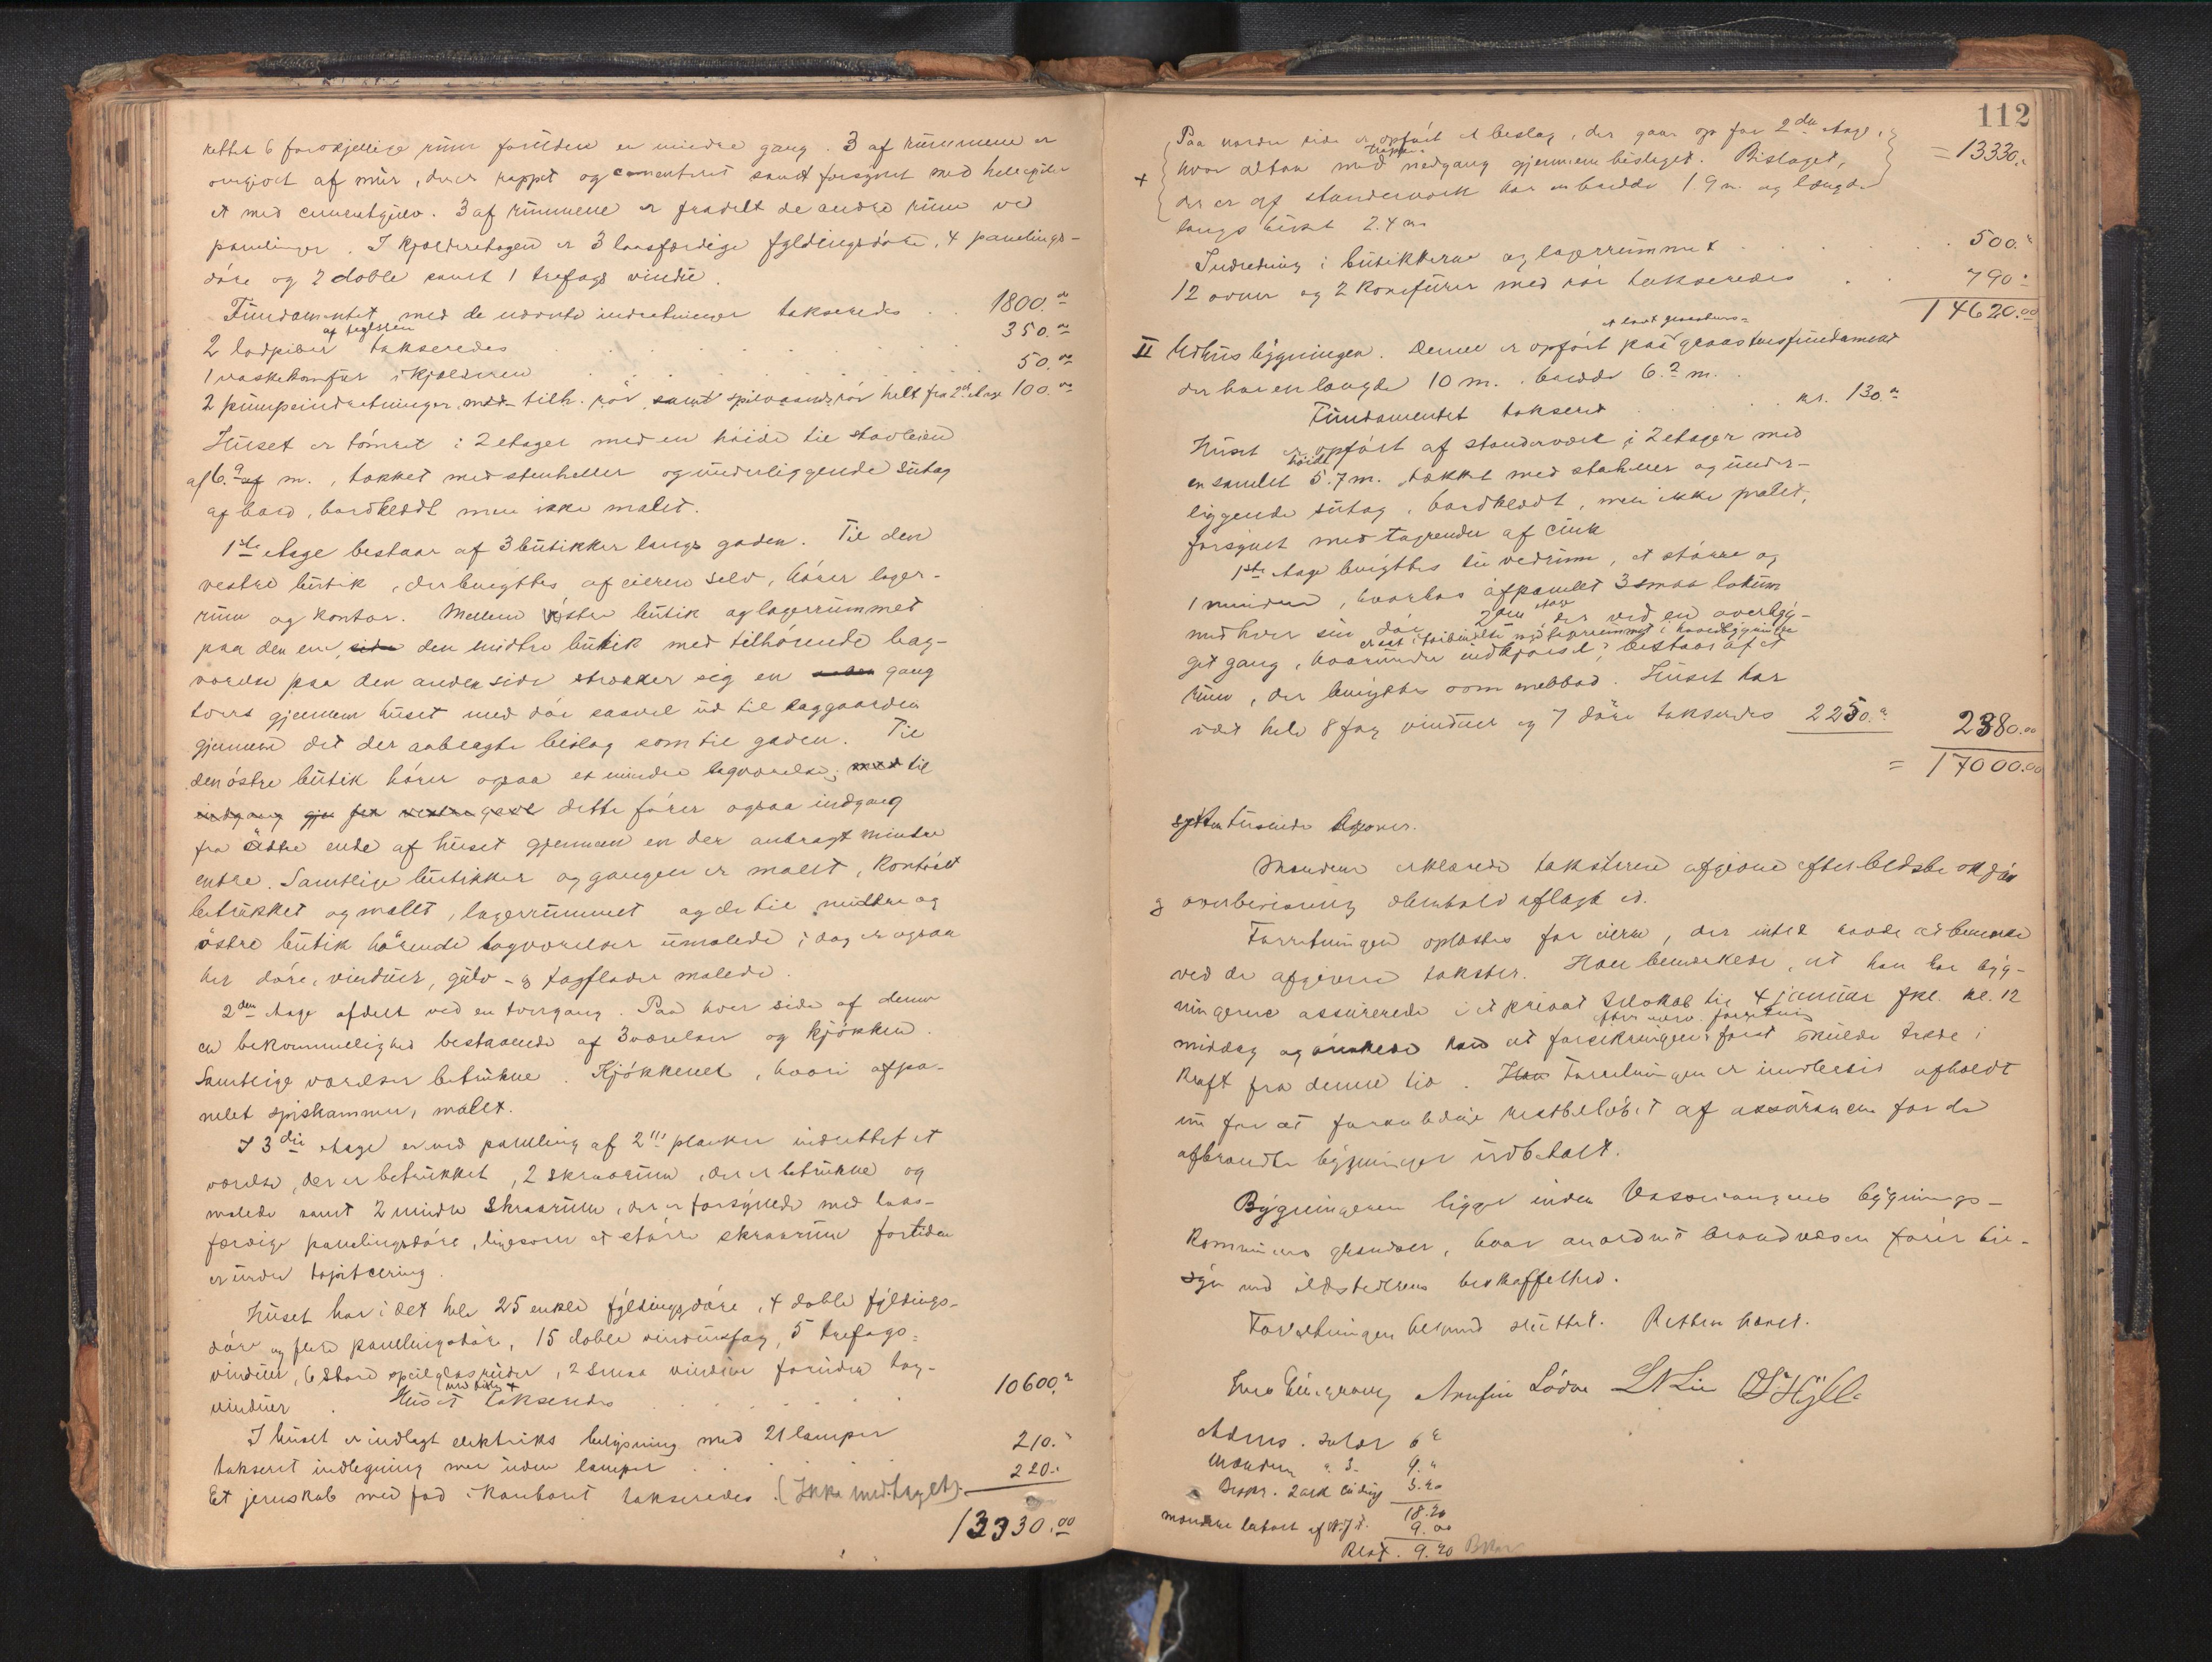 rettet 6 forskjellige rum foruden en mindre gang. 3 af rummene er
omgivet af mur, der er rappet og cementeret samt forsynet med hvelvinger
et med cementgulv. 3 af rummene er fradelt de andre rum ved
panelinger. I kjælderetagen er 3 laasfærdige fyldingsdøre, 4 panelings-
døre og 2 doble samt 1 trefags vindu.
Fundamentet med de nævnte indretninger takseredes . . 1800.00
2 lodpiber af teglsten takseredes . . . 350.00
1 vaskekomfur i kjælderen . . . 50.00
2 pumpeindretninger med tilh. rør samt spilvandsrør helt fra 2den etage 100.00
Huset er tømret i 2 etager med en høide til stavleien
af 6.9 m., tækket med stenheller og underliggende sutag
af bord, bordklædt men ikke malet.
1ste etage bestaar af 3 butikker langs gaden. Til den
vestre butik, der benyttes af eieren selv, hører lager-
rum og kontor. Mellem vestre butik og lagerrummet
paa den ene, side den midtre butik med tilhørende bag-
værelse paa den anden side strækker sig en gang
tvers gjennem huset med dør saavel ud til baggaarden
gjennem det der anbragte bislag som til gaden. Til
den østre butik hører ogsaa et mindre bagværelse; til
indgang gjen fra vestre gavl dette fører ogsaa indgang
fra østre ende af huset gjennem en der anbragt mindre
entre. Samtlige butikker og gangen er malet, kontoret
betrukket og malet, lagerrummet og de til midtre og
østre butik hørende bagværelser umalede; dog er ogsaa
her døre, vinduer, gulv- og tagflader malede.
2den etage afdelt ved en tvergang. Paa hver side af denne
en bekvemmelighed bestaaende af 3 værelser og kjøkken.
Samtlige værelser betrukne. Kjøkkenet, hvori afpa-
nelet spiskammer, malet.
I 3die etage er ved paneling af 2''' planker indrettet et
værelse, der er betrukket, 2 skraarum, der er betrukne og
malede samt 2 mindre skraarum, der er forsynede med laas-
færdige panelingsdøre, ligesom et større skraarum fortiden
er under tapitsering.
Huset har i det hele 25 enkle fyldingsdøre, 4 doble fyldings-
døre og flere panelingsdøre, 15 doble vindusfag, 5 trefags-
vinduer, 6 store speilglasruder, 2 smaa vinduer foruden tag-
vinduer. Huset med bislag + takseredes . . . 10600.00
I huset er indlagt elektriks belysning med 21 lamper
takseret indlegning men uden lamper . . . 210.
Et jernskab med fod i kontoret takseredes (Ikke medtaget). 220.
13330.00
112
Paa nordre side er opført et bislag, der gaar op for 2den etage,
+ hvor altan med trappe nedgang gjennem bislaget. Bislaget, = 13330.
der er af standerværk har en bredde 1.9 m. og længde
langs huset 2.4 m
Indredning i butikkerne og lagerrummet . . . 500.
12 ovner og 2 komfurer med rør takseredes . . 790.
14620.00
II Udhusbygningen. Denne er opført paa et lavt graastensfundament
der har en længde 10 m. bredde 6.2 m.
Fundamentet takseret . . . kr. 130.
Huset er opført af standerværk i 2 etager med
en samlet høide 5.7 m. tækket med stenheller og under-
liggende sutag, bordklædt, men ikke malet,
forsynet med tagrender af zink
1ste etage benyttes til vedrum, et større og
1 mindre, hvorhos afpanelet 3 smaa lokum
med hver sin dør 2den etage der ved en overbyg-
get gang, hvorunder indkjørsel, er sat i forbindelse med lagerrummet i hovedbygningen bestaar af et
rum, der benyttes som melbod. Huset har
i det hele 8 fag vinduer og 7 døre takseredes 2250. 2380.00
= 17000.00
sytten tusinde kroner.
Mændene erklærede taksterne afgivne efter bedste skjøn
og overbevisning i henhold aflagt ed.
Forretningen oplæstes for eieren, der intet havde at bemerke
ved de afgivne takster. Han bemerkede, at han har byg-
ningerne assurerede i et privat selskab til 4 januar fkl. kl. 12
middag og ønskede at forsikringen efter nærv. forretning først skulde træde i
kraft fra denne tid. Han Forretningen er imidlertid afholdt
nu for at faa restbeløbet af assurancen for de
afbrændte bygninger udbetalt.
Bygningerne ligger inden Vossevangens bygnings-
kommunes grændser, hvor anordnet brandvæsen fører til-
syn med ildstedernes beskaffenhed.
Forretningen dermed sluttet. Retten hævet.
LN Lie
Adms. salær 6
Mændene à 3. 9.
3.20
18.20
9.00
Rest. 9.20